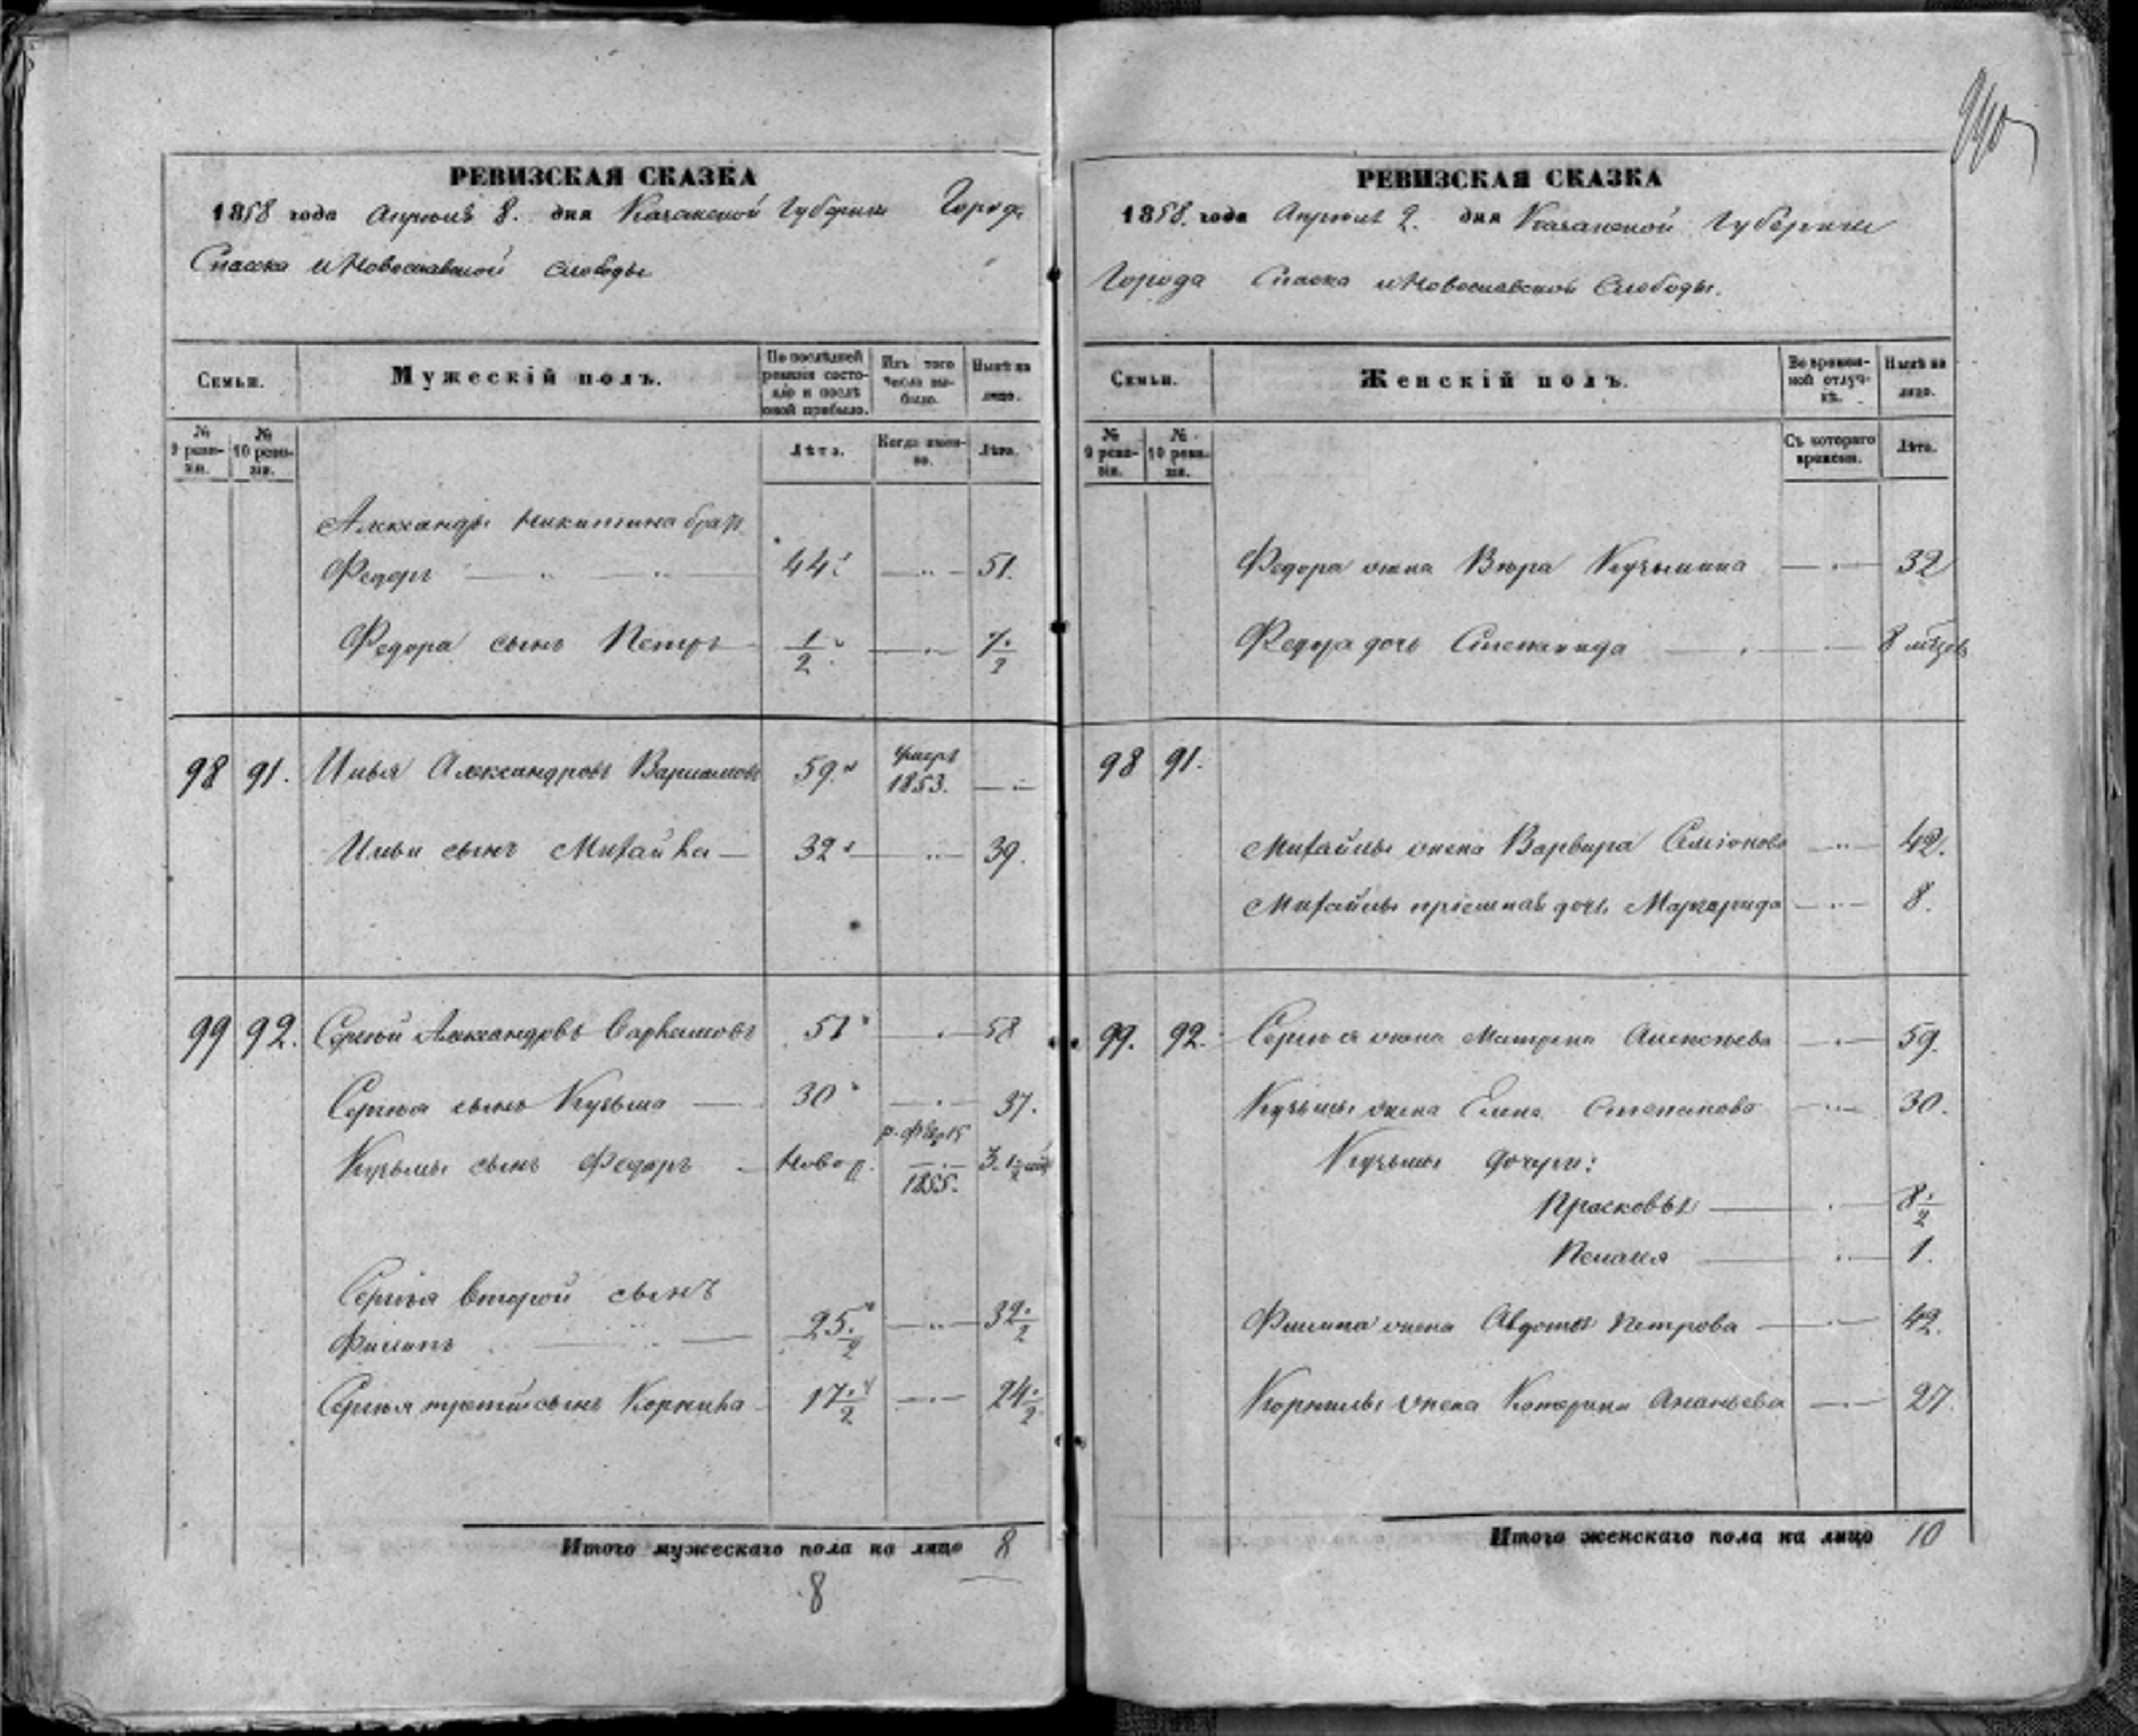 990
РЕВИЗСКАЯ СКАЗКА
1858 года Апреля 8. дня Казанской Губернии Города
Спаска и Новоспавской слободы
Семьи.
Мужескій полъ.
По послѣдней ревизіи состояло и послѣ оной прибыло.
Изъ того числа выбыло.
Нынѣ на лицо.
№ 9 ревизіи.
№ 10 ревизіи.
Лѣта.
Когда именно.
Лѣта.
Александра Никитина брат
Федоръ 44 51.
Федора сынъ Петръ 1/2 7./2
98 91. Илья Александровъ Варламовъ 59. умеръ 1853.
Ильи сынъ Михайла 32 39.
99 92. Сергѣй Александровъ Варламовъ 51 58
Сергѣя сынъ Кузьма 30 37.
Кузьмы сынъ Федоръ Новор. 1855. 3.
Сергѣя второй сынъ
Филипъ 25./2 32./2
Сергѣя третій сынъ Корнила 17./2 24./2
Итого мужескаго пола на лицо 8
8
РЕВИЗСКАЯ СКАЗКА
1858. года Апреля дня Казанской Губернии
Города Спаска и Новоспавской Слободы.
Семьи.
Женскій полъ.
Во временной отлучкѣ.
Нынѣ на лицо.
№ 9 ревизіи.
№ 10 ревизіи.
Съ котораго времени.
Лѣта.
Федора жена Вѣра Кузьмина 32
Федора дочь Степанида 8 мѣцов
98 91.
Михайлы жена Варвара Семіонова 42.
Михайлы пріемная дочь Маргарида 8.
99. 92. Сергѣя жена Матрена Алексѣева 59.
Кузьмы жена Елена Степанова 30.
Кузьмы дочери:
Прасковья 8./2
Пелагея 1.
Филипа жена Авдотья Петрова 42.
Корнилы жена Катерина Ананьева 27.
Итого женскаго пола на лицо 10